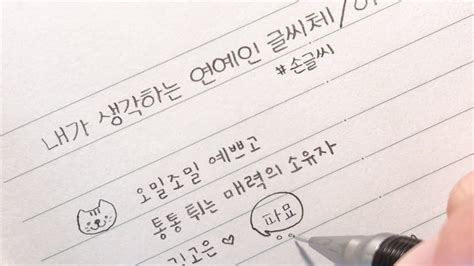 내가 생각하는 연예인 글씨체/
#손글씨
오밀조밀 예쁘고
통통 튀는 매력의 소유자
김고은♡ 파묘